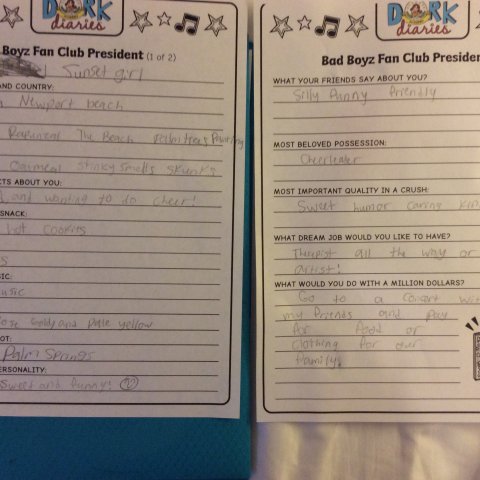 DORK
diaries
Boyz Fan Club President (1 of 2)
Sunset girl
AND COUNTRY:
Newport beach
Rapunzel The Beach Palm trees Painting
Oatmeal Stinky Smells Skunks
CTS ABOUT YOU:
and wanting to do cheer!
SNACK:
hot cookies
SIC:
music
ose Gold and Paste yellow
OT:
Palm Springs
ERSONALITY:
Sweet and funny!
DORK
diaries
Bad Boyz Fan Club Presiden
WHAT YOUR FRIENDS SAY ABOUT YOU?
Silly Funny Friendly
MOST BELOVED POSSESSION:
Cheerleater
MOST IMPORTANT QUALITY IN A CRUSH:
Sweet humor caring kind
WHAT DREAM JOB WOULD YOU LIKE TO HAVE?
Therapist all the way or
artist!
WHAT WOULD YOU DO WITH A MILLION DOLLARS?
Go to a Concert with
my friends and Pay
for food or
Clothing for our
family.